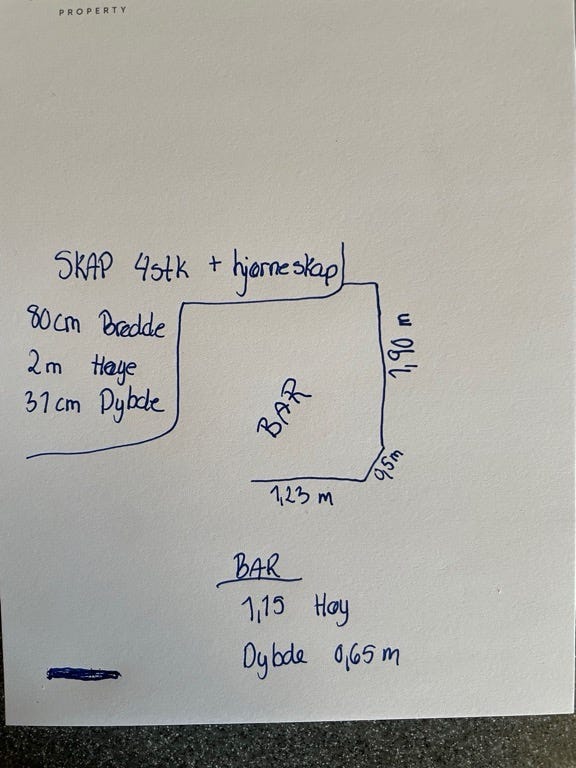 PROPERTY
SKAP 4stk + hjørneskap
80cm Bredde
2m Høye
37cm Dybde
1,90 m
BAR
0,5m
1,23 m
BAR
1,15 Høy
Dybde 0,65 m